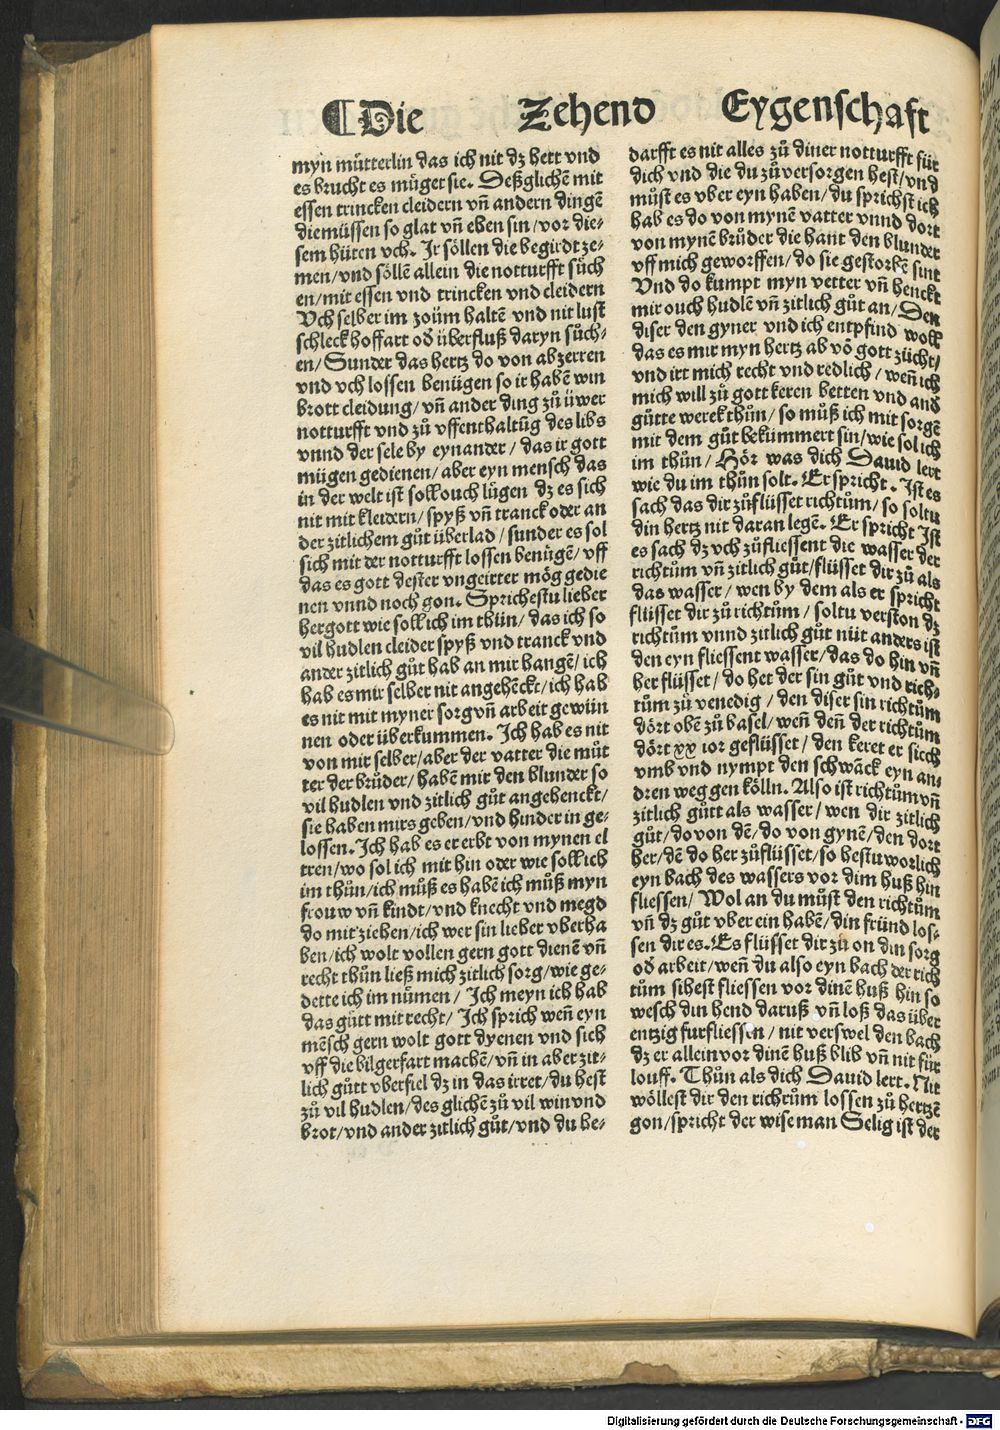 ¶Die Zehend Eygenschaft
myn mütterlin das ich nit dz hett vnd
es brucht es müger sie. Deßglichē mit
essen trincken cleidern vñ andern dingē
die müssen so glat vñ eben sin/vor die-
sem hüten vch. Ir söllen die begirdt ze-
men/vnd söllē allein die notturfft sůch
en/mit essen vnd trincken vnd cleidern
Vch selber im zoüm haltē vnd nit lust
schleck hoffart oď überfluß daryn sůch-
en/Sunder das hertz do von abzerren
vnd vch lossen benügen so ir habē win
brott cleidung/vñ ander ding zů üwer
notturfft vnd zů vffenthaltūg des libs
vnnd der sele by eynander/das ir gott
mügen gedienen/aber eyn mensch das
in der welt ist soll ouch lůgen dz es sich
nit mit kleidern/spyß vñ tranck oder an
der zitlichem gůt überlad/sunder es sol
sich mit der notturfft lossen benügē/vff
das es gott dester vngeirter mög gedie
nen vnnd noch gon. Sprichestu lieber
hergott wie soll ich im thůn/das ich so
vil hudlen cleider spyß vnd tranck vnd
ander zitlich gůt hab an mir hangē/ich
hab es mir selber nit angehēckt/ich hab
es nit mit myner sorg vñ arbeit gewün
nen oder überkummen. Ich hab es nit
von mir selber/aber der vatter die můt
ter der brůder/habē mir den blunder so
vil hudlen vnd zitlich gůt angehenckt/
sie haben mirs geben/vnd hinder in ge-
lossen. Ich hab es ererbt von mynen el
tren/wo sol ich mit hin oder wie soll ich
im thůn/ich můß es habē ich můß myn
frouw vñ kindt/vnd knecht vnd megd
do mit ziehen/ich wer sin lieber vberha
ben/ich wolt vollen gern gott dienē vñ
recht thůn ließ mich zitlich sorg/wie ge-
dette ich im nůmen/Ich meyn ich hab
das gůtt mit recht/Ich sprich weñ eyn
mēsch gern wolt gott dyenen vnd sich
vff die bilgerfart machē/vñ in aber zit-
lich gůtt vberfiel dz in das irret/du hest
zů vil hudlen/des glichē zů vil win vnd
brot/vnd ander zitlich gůt/vnd du be-
darfft es nit alles zů diner notturfft für
dich vnd die du zůuersorgen hest/vnd
můst es vber eyn haben/du sprichst ich
hab es do von mynē vatter vnnd dort
von mynē brůder die hant den blunder
vff mich geworffen/do sie gestorbē sint
Vnd do kumpt myn vetter vñ henckt
mir ouch hudlē vñ zitlich gůt an/Den
diser den gyner vnd ich entpfind woll
das es mir myn hertz ab vō gott zücht/
vnd irt mich recht vnd redlich/weñ ich
mich will zů gott keren betten vnd anď
gůtte werck thůn/so můß ich mit sorgē
mit dem gůt bekümmert sin/wie sol ich
im thůn/Hör was dich Dauid lert
wie du im thůn solt. Er spricht. Ist es
sach das dir zůflüsset richtům/so soltu
din hertz nit daran legē. Er spricht Ist
es sach dz vch zůfliessent die wasser der
richtům vñ zitlich gůt/flüsset dir zů als
das wasser/wen by dem als er spricht
flüsset dir zů richtům/soltu verston dz
richtům vnnd zitlich gůt nüt anders ist
den eyn fliessent wasser/das do hin vñ
her flüsset/do het der sin gůt vnd rich-
tům zů venedig/den diser sin richtům
dört obē zů basel/weñ deñ der richtům
dört xx ior geflüsset/den keret er siech
vmb vnd nympt den schwāck eyn an-
dren weg gen kölln. Also ist richtům vñ
zitlich gůtt als wasser/wen dir zitlich
gůt/do von dē/do von gynē/den dort
her/dē do her zůflüsset/so hestu worlich
eyn bach des wassers vor dim huß hin
fliessen/Wol an du můst den richtům
vñ dz gůt vber ein habē/din fründ los-
sen dir es. Es flüsset dir zů on din sorg
oď arbeit/weñ du also eyn bach der rich
tům sihest fliessen vor dinē huß hin so
wesch din hend daruß vñ loß das über
entzig furfliessen/nit verswel den bach
dz er allein vor dinē huß blib vñ nit für
louff. Thůn als dich Dauid lert. Nit
wöllest dir den richtům lossen zů hertzē
gon/spricht der wise man Selig ist der
Digitalisierung gefördert durch die Deutsche Forschungsgemeinschaft - DFG